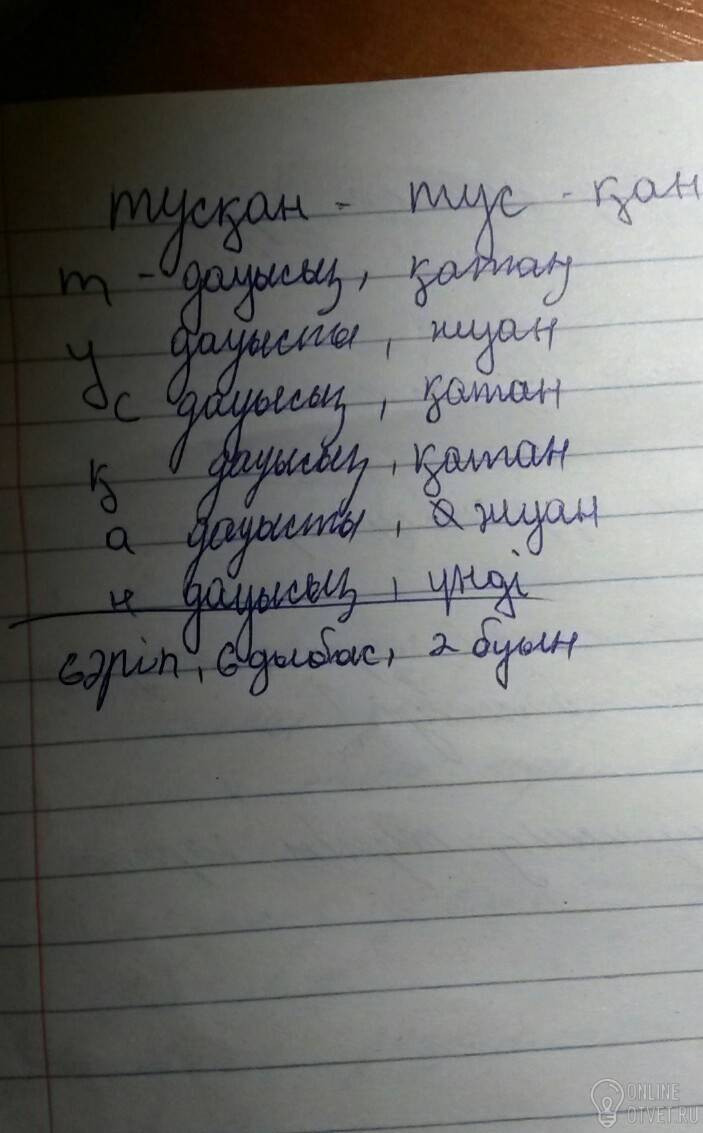 тусқан - тус - қан
т - дауысыз, қатаң
у дауысты, жуан
с дауысыз, қатан
қ дауысыз, қатан
а дауысты, жуан
н дауысыз, үнді
6 әріп, 6 дыбыс, 2 буын
ONLINE
OTVET.RU